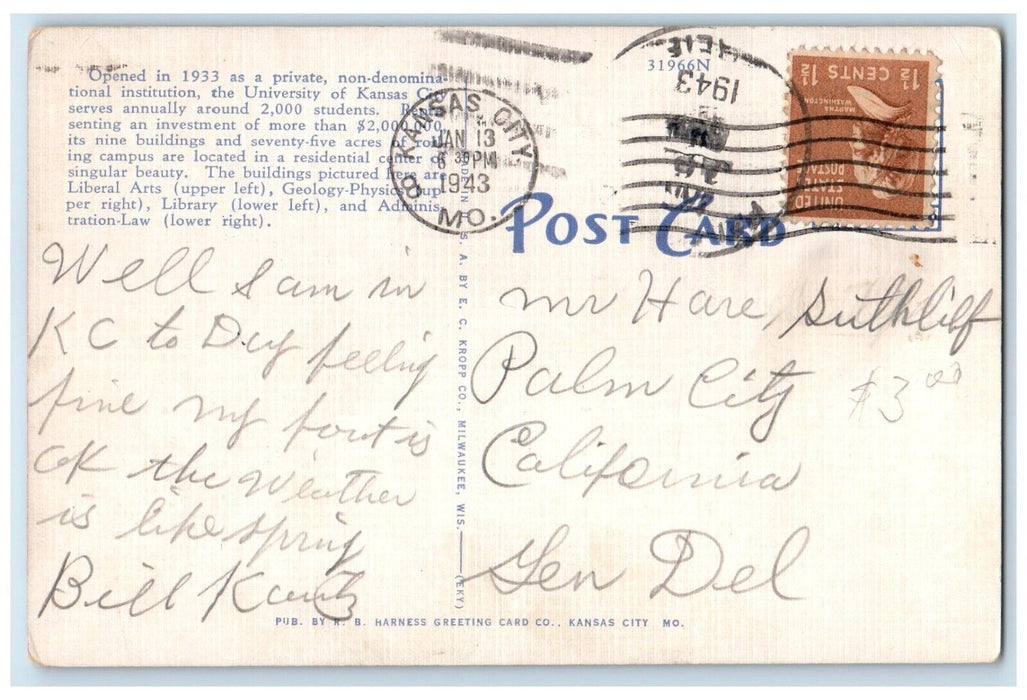 Opened in 1933 as a private, non-denomina-
tional institution, the University of Kansas City
serves annually around 2,000 students. Repre-
senting an investment of more than $2,000,000
its nine buildings and seventy-five acres of roll-
ing campus are located in a residential center of
singular beauty. The buildings pictured here are
Liberal Arts (upper left), Geology-Physics (up-
per right), Library (lower left), and Adminis-
tration-Law (lower right).
KANSAS CITY
JAN 13
6 30 PM
1943
MO.
8
31966N
1943
1½ CENTS 1½
MARTHA
WASHINGTON
UNITED
STATES
POSTAGE
POST CARD
Well I am in
KC to Day feeling
fine my foot is
ok the weather
is like spring
Bill Kautz
S. A. BY E. C. KROPP CO., MILWAUKEE, WIS. (EKY)
Mr Hare Suthliff
Palm City
California
Gen Del
$3 00
PUB. BY R. B. HARNESS GREETING CARD CO., KANSAS CITY MO.